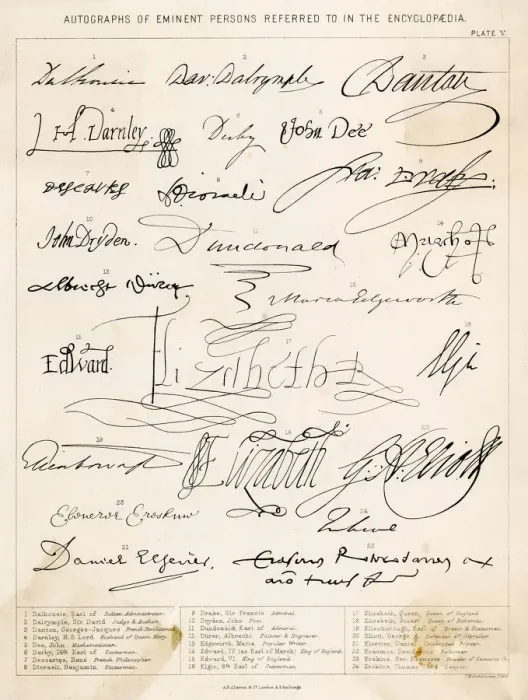 AUTOGRAPHS OF EMINENT PERSONS REFERRED TO IN THE ENCYCLOPÆDIA.
PLATE V.
1 2 3
Dalhousie Dav: Dalrymple Danton
H. Darnley Derby John Dee
7 8 9
Descartes Disraeli Fra: Drake
10 11 14
John Dryden. Dundonald March
12 13
Albrecht Dürer Maria Edgeworth
15 17 18
Edward Elizabeth Elgin
19 20
Ellenborough Elizabeth G. A. Eliott
Ebenezer Erskine
24
21 22
Daniel Elsevier. Erasmus Roterodamus
1 Dalhousie, Earl of Indian Administrator.
2 Dalrymple, Sir David Judge & Author.
3 Danton, Georges-Jacques French Revolutionist
4 Darnley, H.S. Lord Husband of Queen Mary.
5 Dee, John Mathematician.
6 Derby, 14th Earl of Statesman.
7 Descartes, René French Philosopher
8 Disraeli, Benjamin Statesman.
9 Drake, Sir Francis Admiral.
10 Dryden, John Poet.
11 Dundonald, Earl of Admiral.
12 Dürer, Albrecht Painter & Engraver
13 Edgeworth, Maria Popular Writer
14 Edward, IV. (as Earl of March) King of England.
15 Edward, VI. King of England.
16 Elgin, 8th Earl of Statesman.
17 Elizabeth, Queen, Queen of England
18 Elizabeth, Stuart Queen of Bohemia.
19 Ellenborough, Earl of Orator & Statesman.
20 Eliott, George A. Defender of Gibraltar
21 Elsevier, Daniel Celebrated Printer.
22 Erasmus, Desiderius Reformer
23 Erskine, Rev. Ebenezer Founder of Secession Ch.
24 Erskine, Thomas Lord